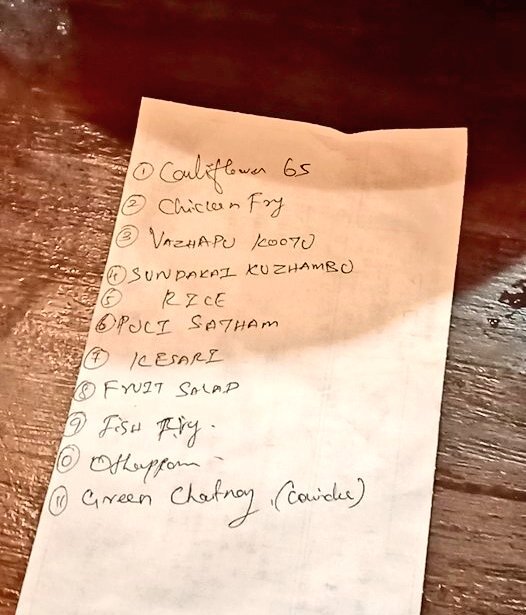 ① Cauliflower 65
② Chicken Fry
③ VAZHAPU KOOTU
④ SUNDAKAI KUZHAMBU
⑤ RICE
⑥ PULI SATHAM
⑦ KESARI
⑧ FRUIT SALAD
⑨ FISH Fry.
⑩ Othappam
⑪ Green Chatnay